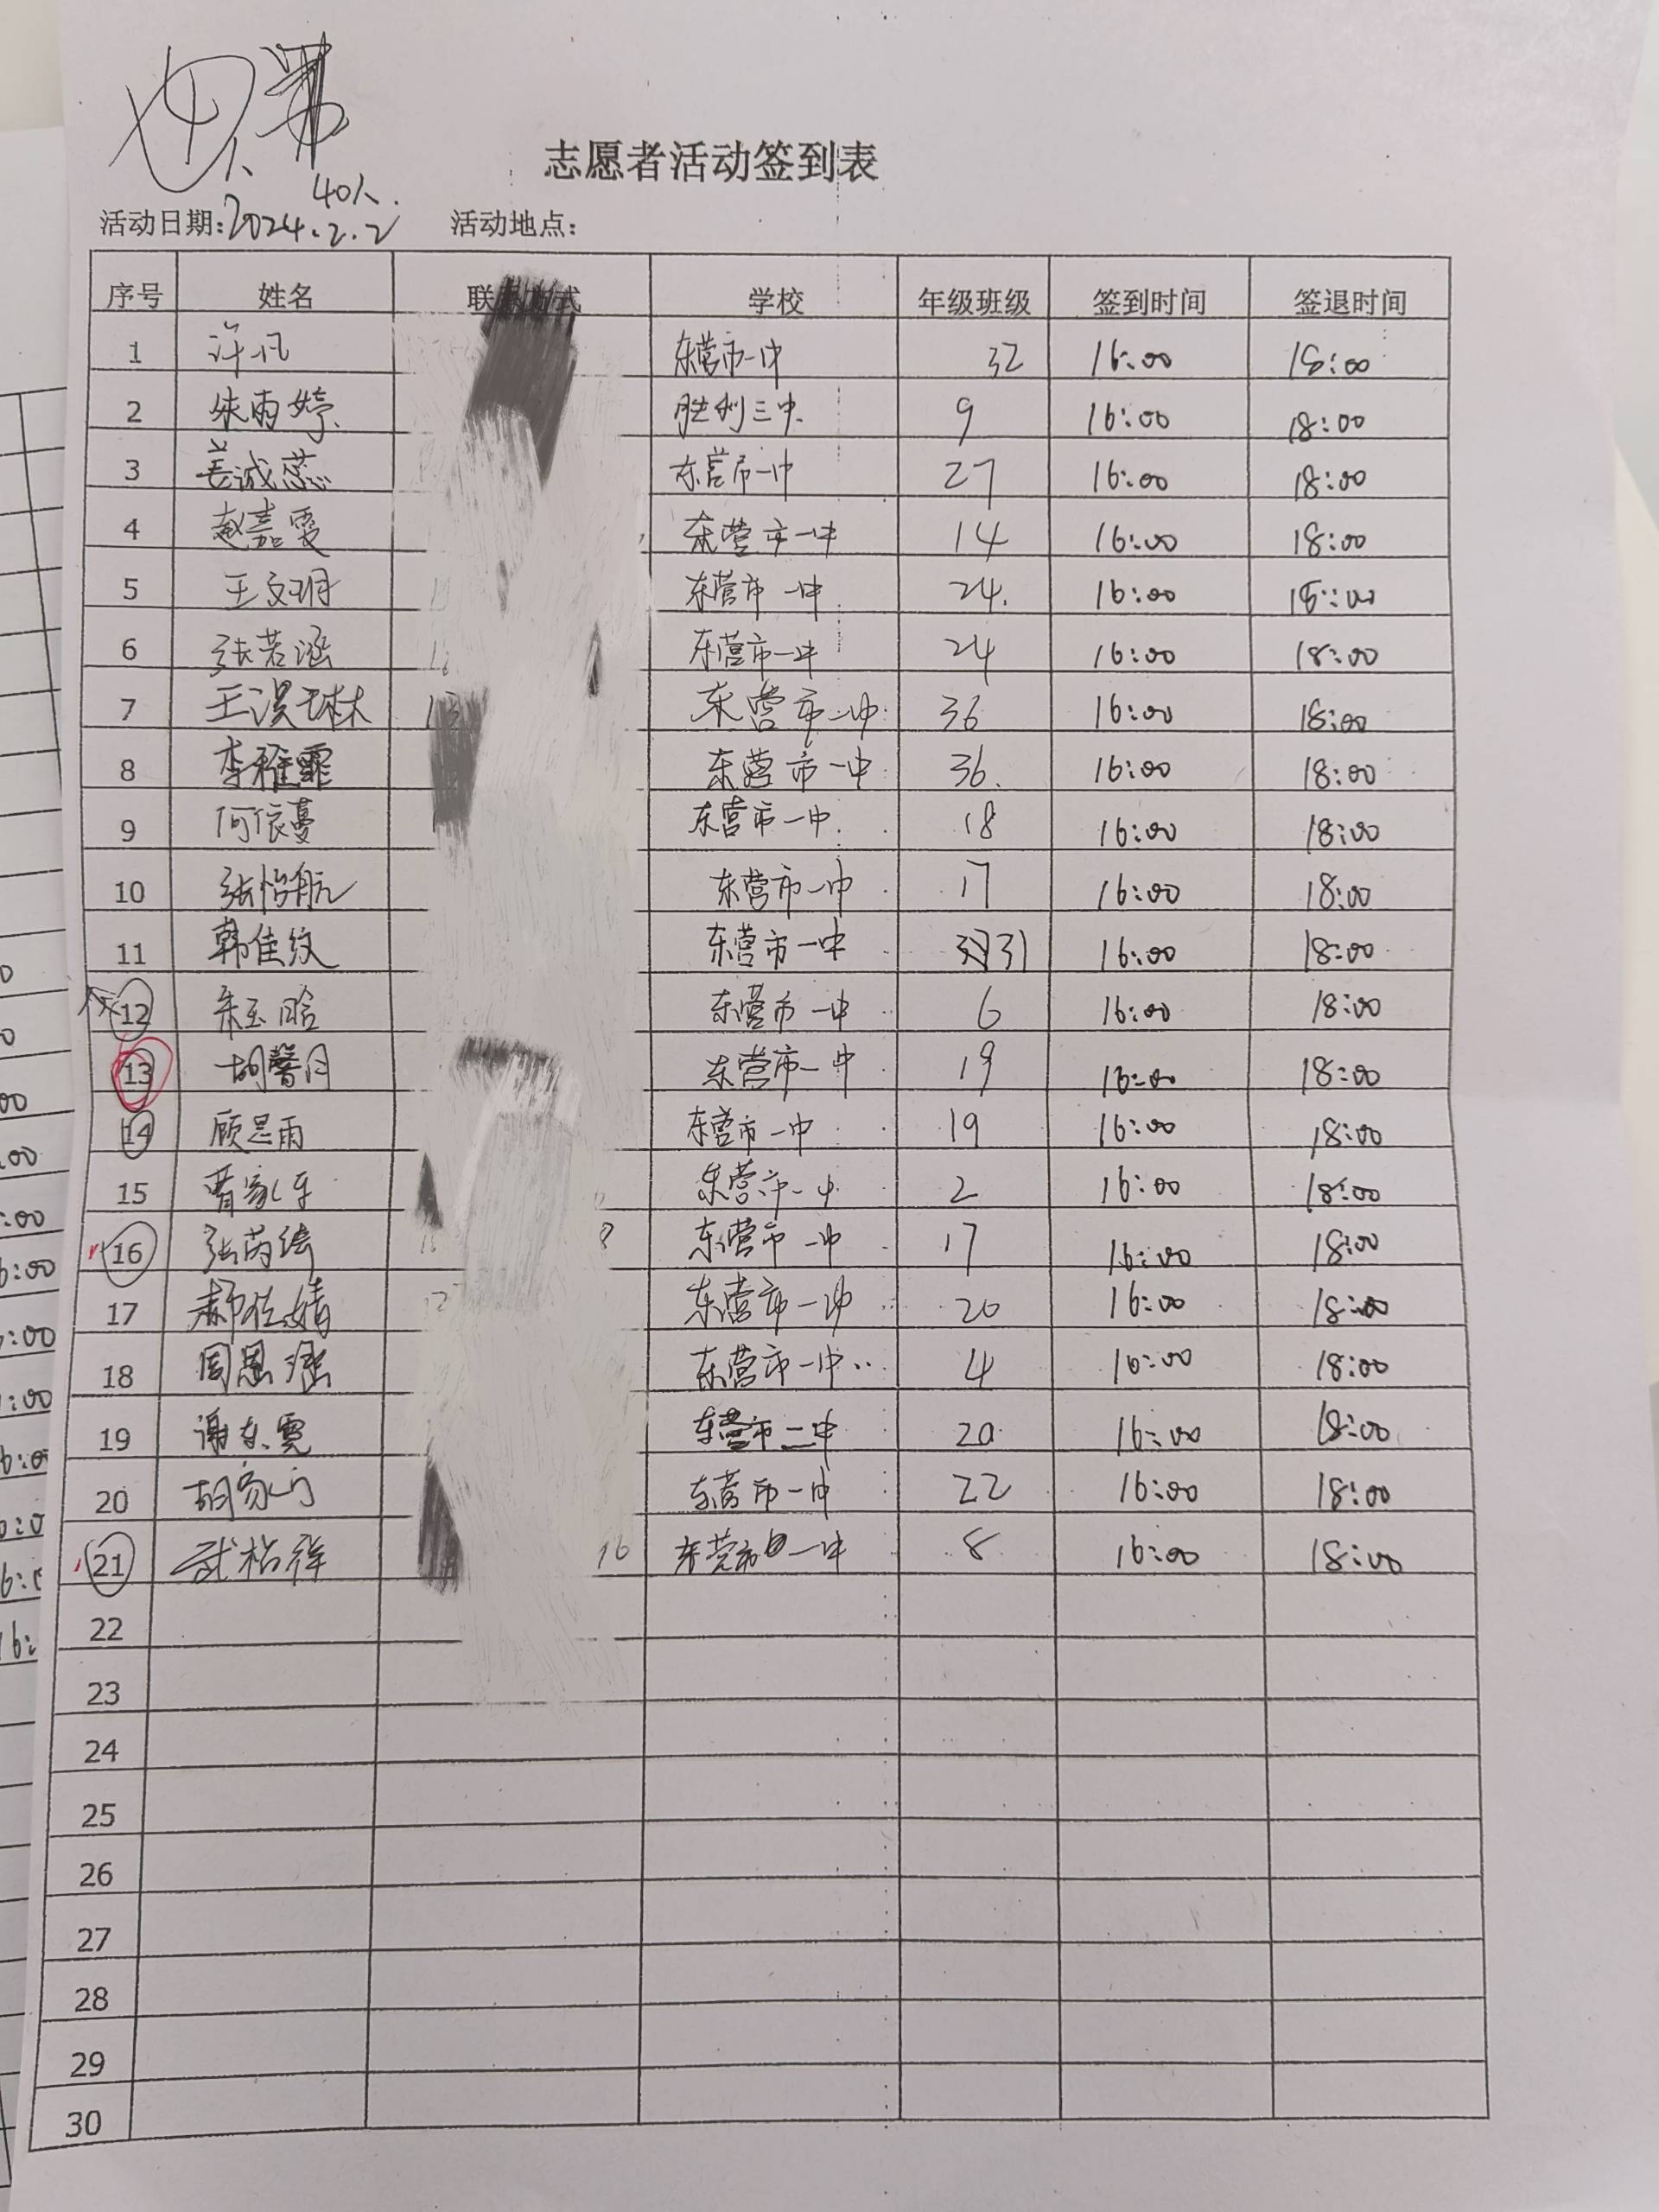 40人.
志愿者活动签到表
活动日期:2024.2.2 活动地点:
序号 姓名 联 式 学校 年级班级 签到时间 签退时间
1 许凡 东营市一中 32 16:00 18:00
2 朱雨婷. 胜利三中. 9 16:00 18:00
3 姜诚蕊 东营市一中 27 16:00 18:00
4 赵嘉雯 东营市一中 14 16:00 18:00
5 王文玥 东营市一中 24. 16:00 18:00
6 张若涵 东营市一中 24 16:00 18:00
7 王淏琳 13 东营市一中. 36 16:00 18:00
8 李雅霏 东营市一中. 36. 16:00 18:00
9 何依蔓 东营市一中. 18 16:00 18:00
10 张怡航 东营市一中. 17 16:00 18:00
11 韩佳纹 东营市一中 31 16:00 18:00
12 朱玉晗 东营市一中. 6 16:00 18:00
13 胡馨月 东营市一中 19 16:00 18:00
14 顾思雨 东营市一中. 19 16:00 18:00
15 东营市一中 2 16:00 18:00
16 张芮绮 东营市一中 17 16:00 18:00
17 郝佳婧 东营市一中 20 16:00 18:00
18 周恩 东营市一中.. 4 16:00 18:00
19 谢东霓 东营市二中 20 16:00 18:00
20 胡家 东营市一中 22 16:00 18:00
21 武 祥 16 东营市一中 8 16:00 18:00
22
23
24
25
26
27
28
29
30